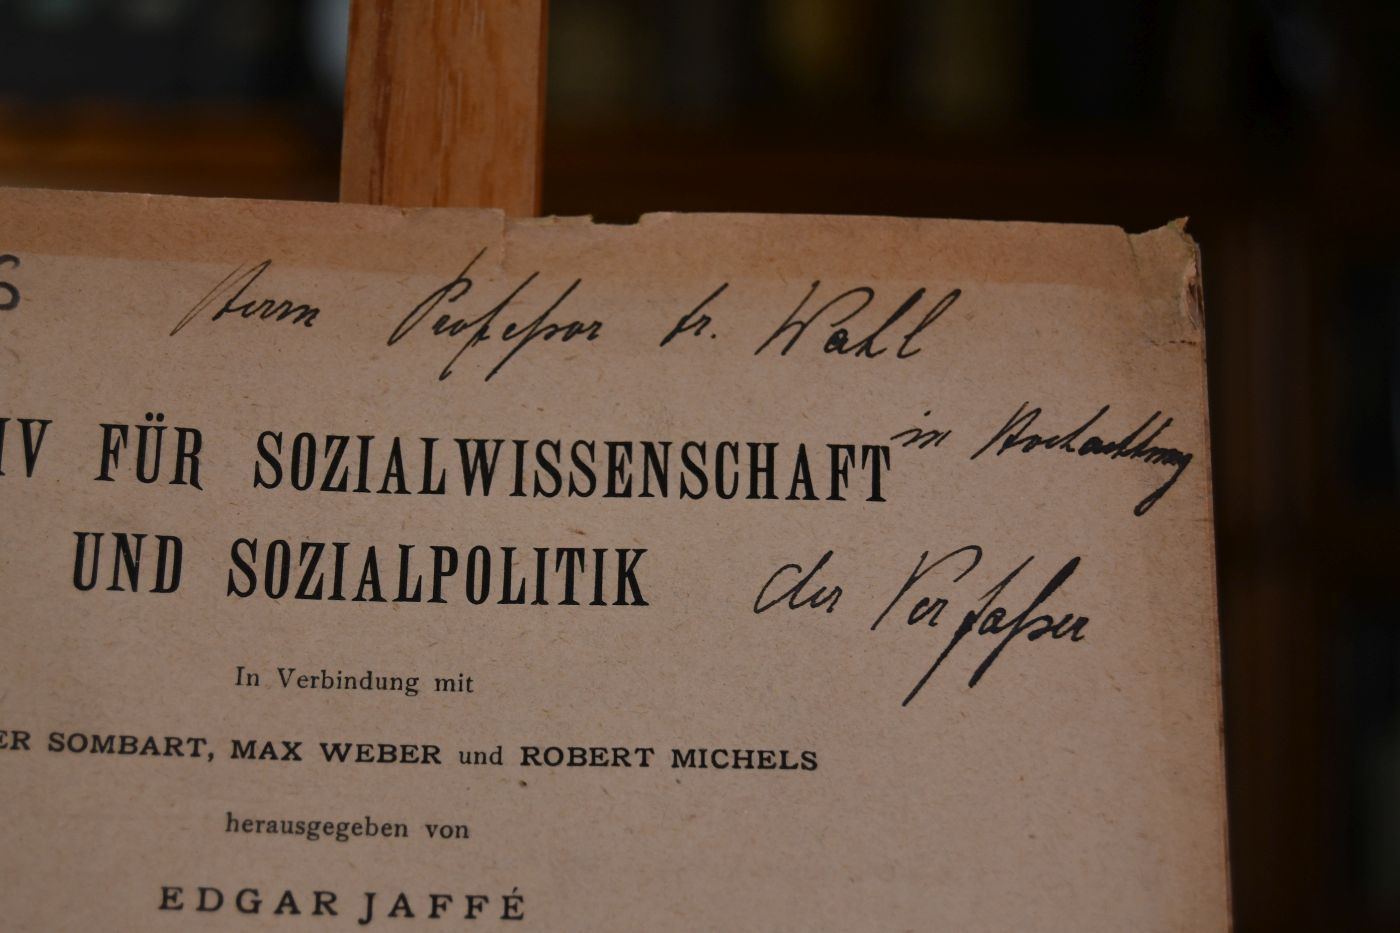 S
Herrn Professor Dr. Wahl
in Hochachtung
IV FÜR SOZIALWISSENSCHAFT
UND SOZIALPOLITIK
der Verfasser
In Verbindung mit
ER SOMBART, MAX WEBER und ROBERT MICHELS
herausgegeben von
EDGAR JAFFÉ